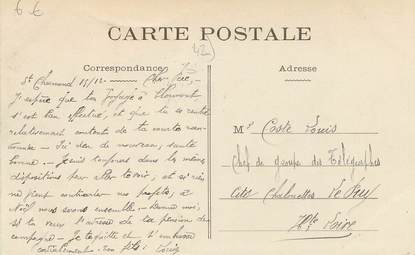 6 €
CARTE POSTALE
42
Correspondance
Adresse
St Chamond 15/12 - Cher Père, -
J'espère que ton voyage à Clermont
s'est bien effectué, et que tu es rentré
relativement content de ta courte
Rien de nouveau, santé
bonne. - Je suis toujours dans les mêmes
dispositions pour aller te voir, et si rien
ne vient contrarier nos projets, à
Noël nous serons ensemble. - Donne moi,
si tu veux l'adresse de ta pension de
campagne. - Je te quitte et t'embrasse
cordialement. ton fils: Louis
Mr Coste Louis
Chef de groupe des Télégraphes
Cité Chalmelles Le Puy
Hte Loire